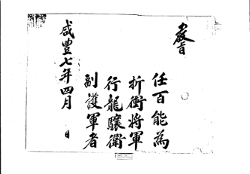 敎旨
任百能爲
折衝將軍
行龍驤衛
副護軍者
咸豊七年四月 日